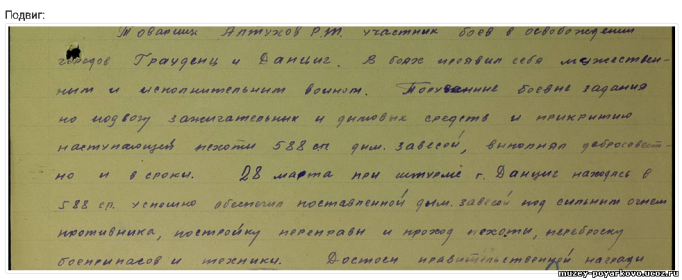 Подвиг:
Товарищ Алтухов Р.Т. участник боев в освобождении
городов Грауденц и Данциг. В боях проявил себя мужествен-
ным и исполнительным воином. Порученные боевые задания
по подвозу зажигательных и дымовых средств и прикрытию
наступающей пехоты 588 сп дым. завесой, выполнял добросовест-
но и в сроки. 28 марта при штурме г. Данциг находясь в
588 сп. успешно обеспечил поставленной дым. завесой под сильным огнем
противника, постройку переправы и проход пехоты, переброску
боеприпасов и техники. Достоен правительственной награды
muzey-poyarkovo.ucoz.ru